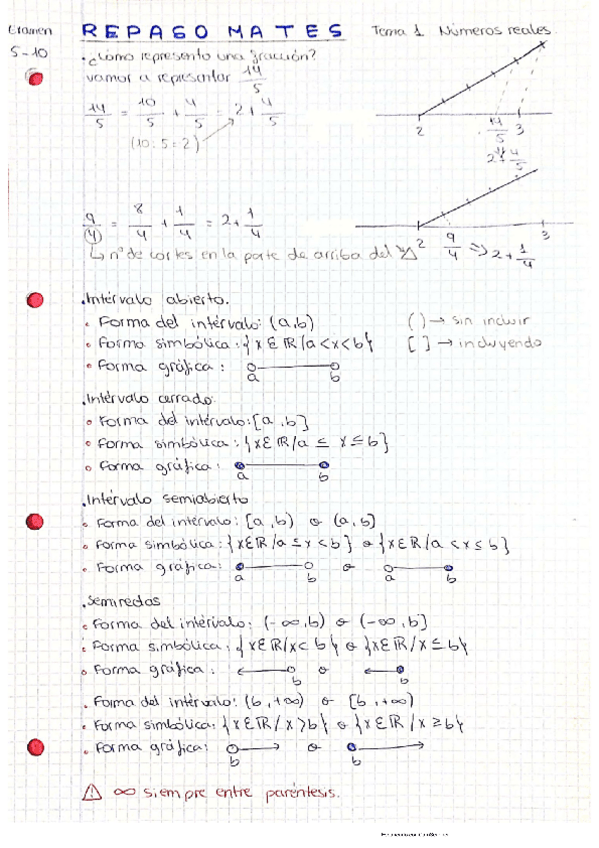 Examen
5-10
REPASO MATES
Tema 1. Números reales.
· ¿Cómo represento una fracción?
vamos a representar 14/5
14/5 = 10/5 + 4/5 = 2+4/5
(10:5=2)
2 14/5 3
2+4/5
9/4 = 8/4 + 1/4 = 2+1/4
↳ nº de cortes en la parte de arriba del
2 9/4 ⇒ 2+1/4 3
. Intérvalo abierto.
• Forma del intérvalo: (a,b)
( ) → sin incluir
• Forma simbólica: {x∈ℝ/a<x<b}
[ ] → incluyendo
• Forma gráfica:
a b
. Intérvalo cerrado.
• Forma del intérvalo: [a,b]
• Forma simbólica: {x∈ℝ/a ≤ x ≤ b}
• Forma gráfica:
a b
. Intérvalo semiabierto
• Forma del intérvalo: [a,b) o (a,b]
• Forma simbólica: {x∈ℝ/a ≤ x < b} o {x∈ℝ/a < x ≤ b}
• Forma gráfica: o
a b a b
. Semirectas
• Forma del intérvalo: (-∞,b) o (-∞,b]
• Forma simbólica: {x∈ℝ/x< b} o {x∈ℝ/x ≤ b}
• Forma gráfica: o
b b
. Forma del intérvalo: (b,+∞) o [b,+∞)
• Forma simbólica: {x∈ℝ/x>b} o {x∈ℝ/x ≥ b}
• Forma gráfica: o
b b
⚠ ∞ siempre entre paréntesis.